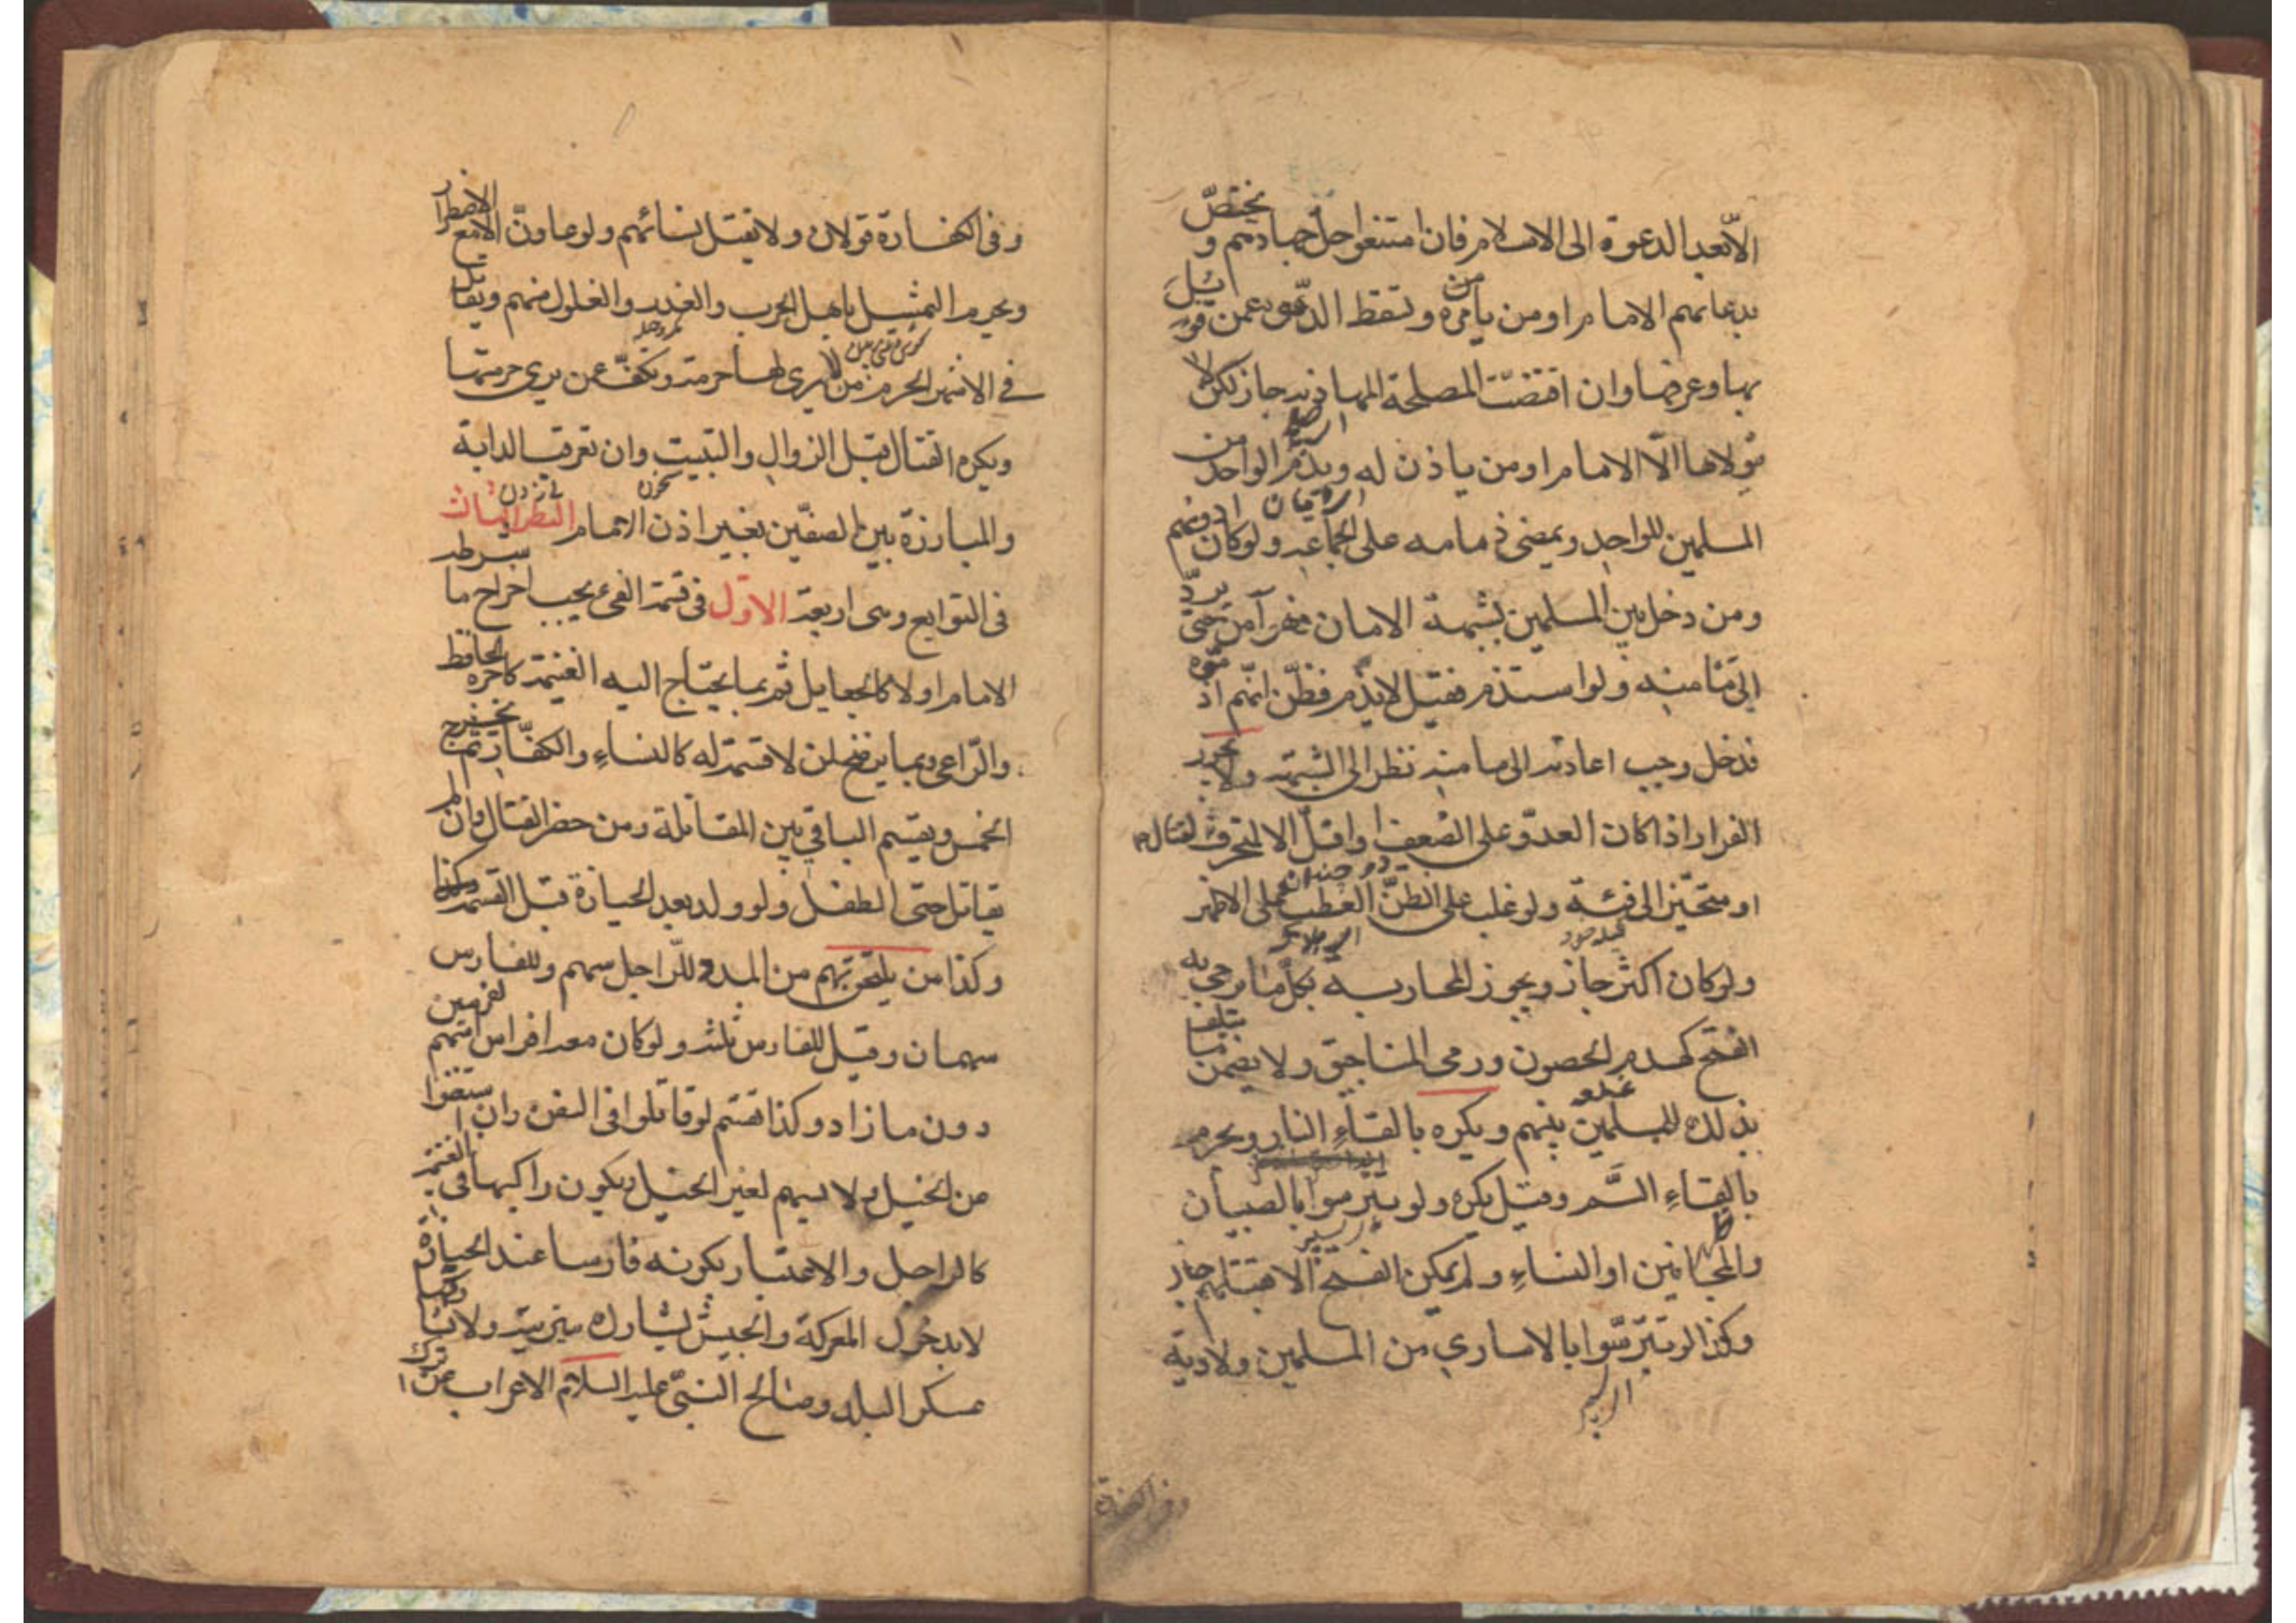 الّا بعد الدعوة الى الاسلام فان امتنعوا حلّ جهادهم و يختصّ
بدعائهم الامام او من يأمره وتسقط الدعوة عمن قوتل
بها وعرفها وان اقتضت المصلحة المهادنة جاز لكن لا
يتولاها الّا الامام او من ياذن له ويذم الواحد من
المسلمين للواحد ويمضى ذمامه على الجماعة ولو كان ادونهم
ومن دخل بين المسلمين بشبهة الامان فهو آمن حتى يردّ
الى مأمنه ولو استذم فقيل لا يذم فظن انهم اذموه
فدخل وجب اعادته الى مامنه نظرا الى الشبهة ولا يجوز
الفرار اذا كان العدوّ على الضعف او اقلّ الا لمتحرف لقتال
او متحيّز الى فئة ولو غلب على الظنّ العطب على الاظهر
ولو كان اكثر جاز ويجوز المحاربة بكلّ ما يرجى به
الفتح كهدم الحصون ورمى المناجيق ولا يضمن ما يتلف
بذلك للمسلمين بينهم ويكره بالقاء النار ويحرم
بالقاءِ السَّم وقيل يكره ولو تترسوا بالصبيان
والمجانين او النساءِ ولم يمكن الفتح الا بقتلهم جاز
وكذا لو تترّسّوا بالاسارى من المسلمين ولا دية
وفى الكفارة
وفى الكفارة قولان ولا يقتل نسائهم ولو عاونّ الا مع الاضطرار
ويحرم التمثيل باهل الحرب والغدر والغلول منهم ويقاتل
فى الاشهر الحرم من لا يرى لها حرمة ويكفّ عن يرى حرمتها
ويكره القتال قبل الزوال والتبييت وان تعرقب الدابة
والمبارزة بين الصفّين بغير اذن الامام النظر الثالث
فى التوابع وهى اربعة الاوّل فى قسمة الفىء يجب اخراج ما شرطه
الامام اولا كالجعايل ثم بما يحتاج اليه الغنيمة كاجرة الحافظ
والرّاعى وبما يرضخ لمن لا قسمة له كالنساءِ والكفّار ثم يخرج
الخمس ويقسم الباقى بين المقاتلة ومن حضر القتال وان لم
يقاتل حتى الطفل ولو ولد بعد الحيازة قبل القسمة وكذا
وكذا من يلتحق بهم من المدد للرّاجل سهم وللفارس
سهمان وقيل للفارس ثلثة ولو كان معه افراس اسهم لفرسين
دون ما زاد وكذا تقسم لو قاتلوا فى السفن وان استغنوا
عن الخيل ولا يسهم لغير الخيل ويكون راكبها فى الغنيمة
كالراجل والاعتبار بكونه فارسا عند الحيازة
لا بدخول المعركة والجيش يشارك سريته ولا يشاركها
عسكر البلد وصالح النبىّ عليه السلام الاعراب عن ترك ا